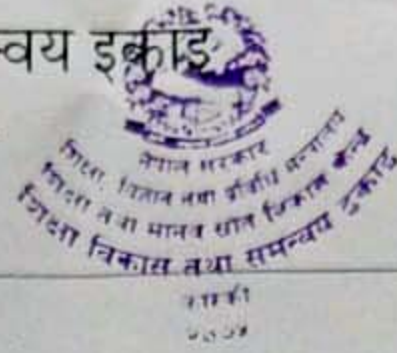 वय इकाइ
नेपाल सरकार
शिक्षा, विज्ञान तथा प्रविधि मन्त्रालय
शिक्षा तथा मानव स्रोत विकास केन्द्र
शिक्षा विकास तथा समन्वय इकाइ
कास्की